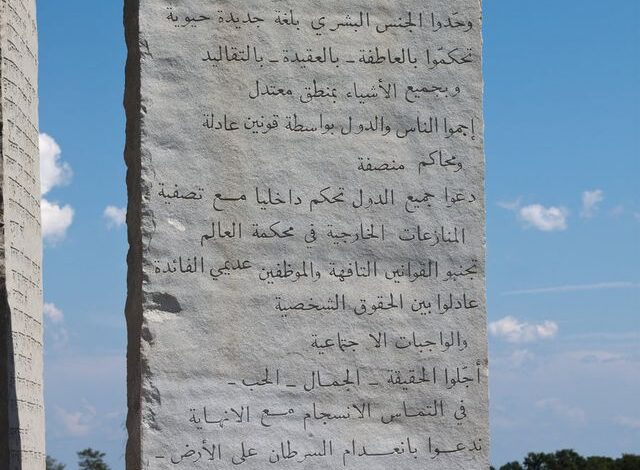 وحّدوا الجنس البشري بلغة جديدة حيوية
تحكمّوا بالعاطفة - بالعقيدة - بالتقاليد
وبجميع الأشياء بمنطق معتدل
إجموا الناس والدول بواسطة قونين عادلة
ومحاكم منصفة
دعوا جميع الدول تحكم داخليا مع تصفية
المنازعات الخارجية في محكمة العالم
تجنبو القوانين التافهة والموظفين عديمي الفائدة
عادلوا بين الحقوق الشخصية
والواجبات الاجتماعية
أجّلوا الحقيقة - الجمال - الحب -
في التماس الانسجام مع الانهاية
ندعوا بانعدام السرطان على الأرض -